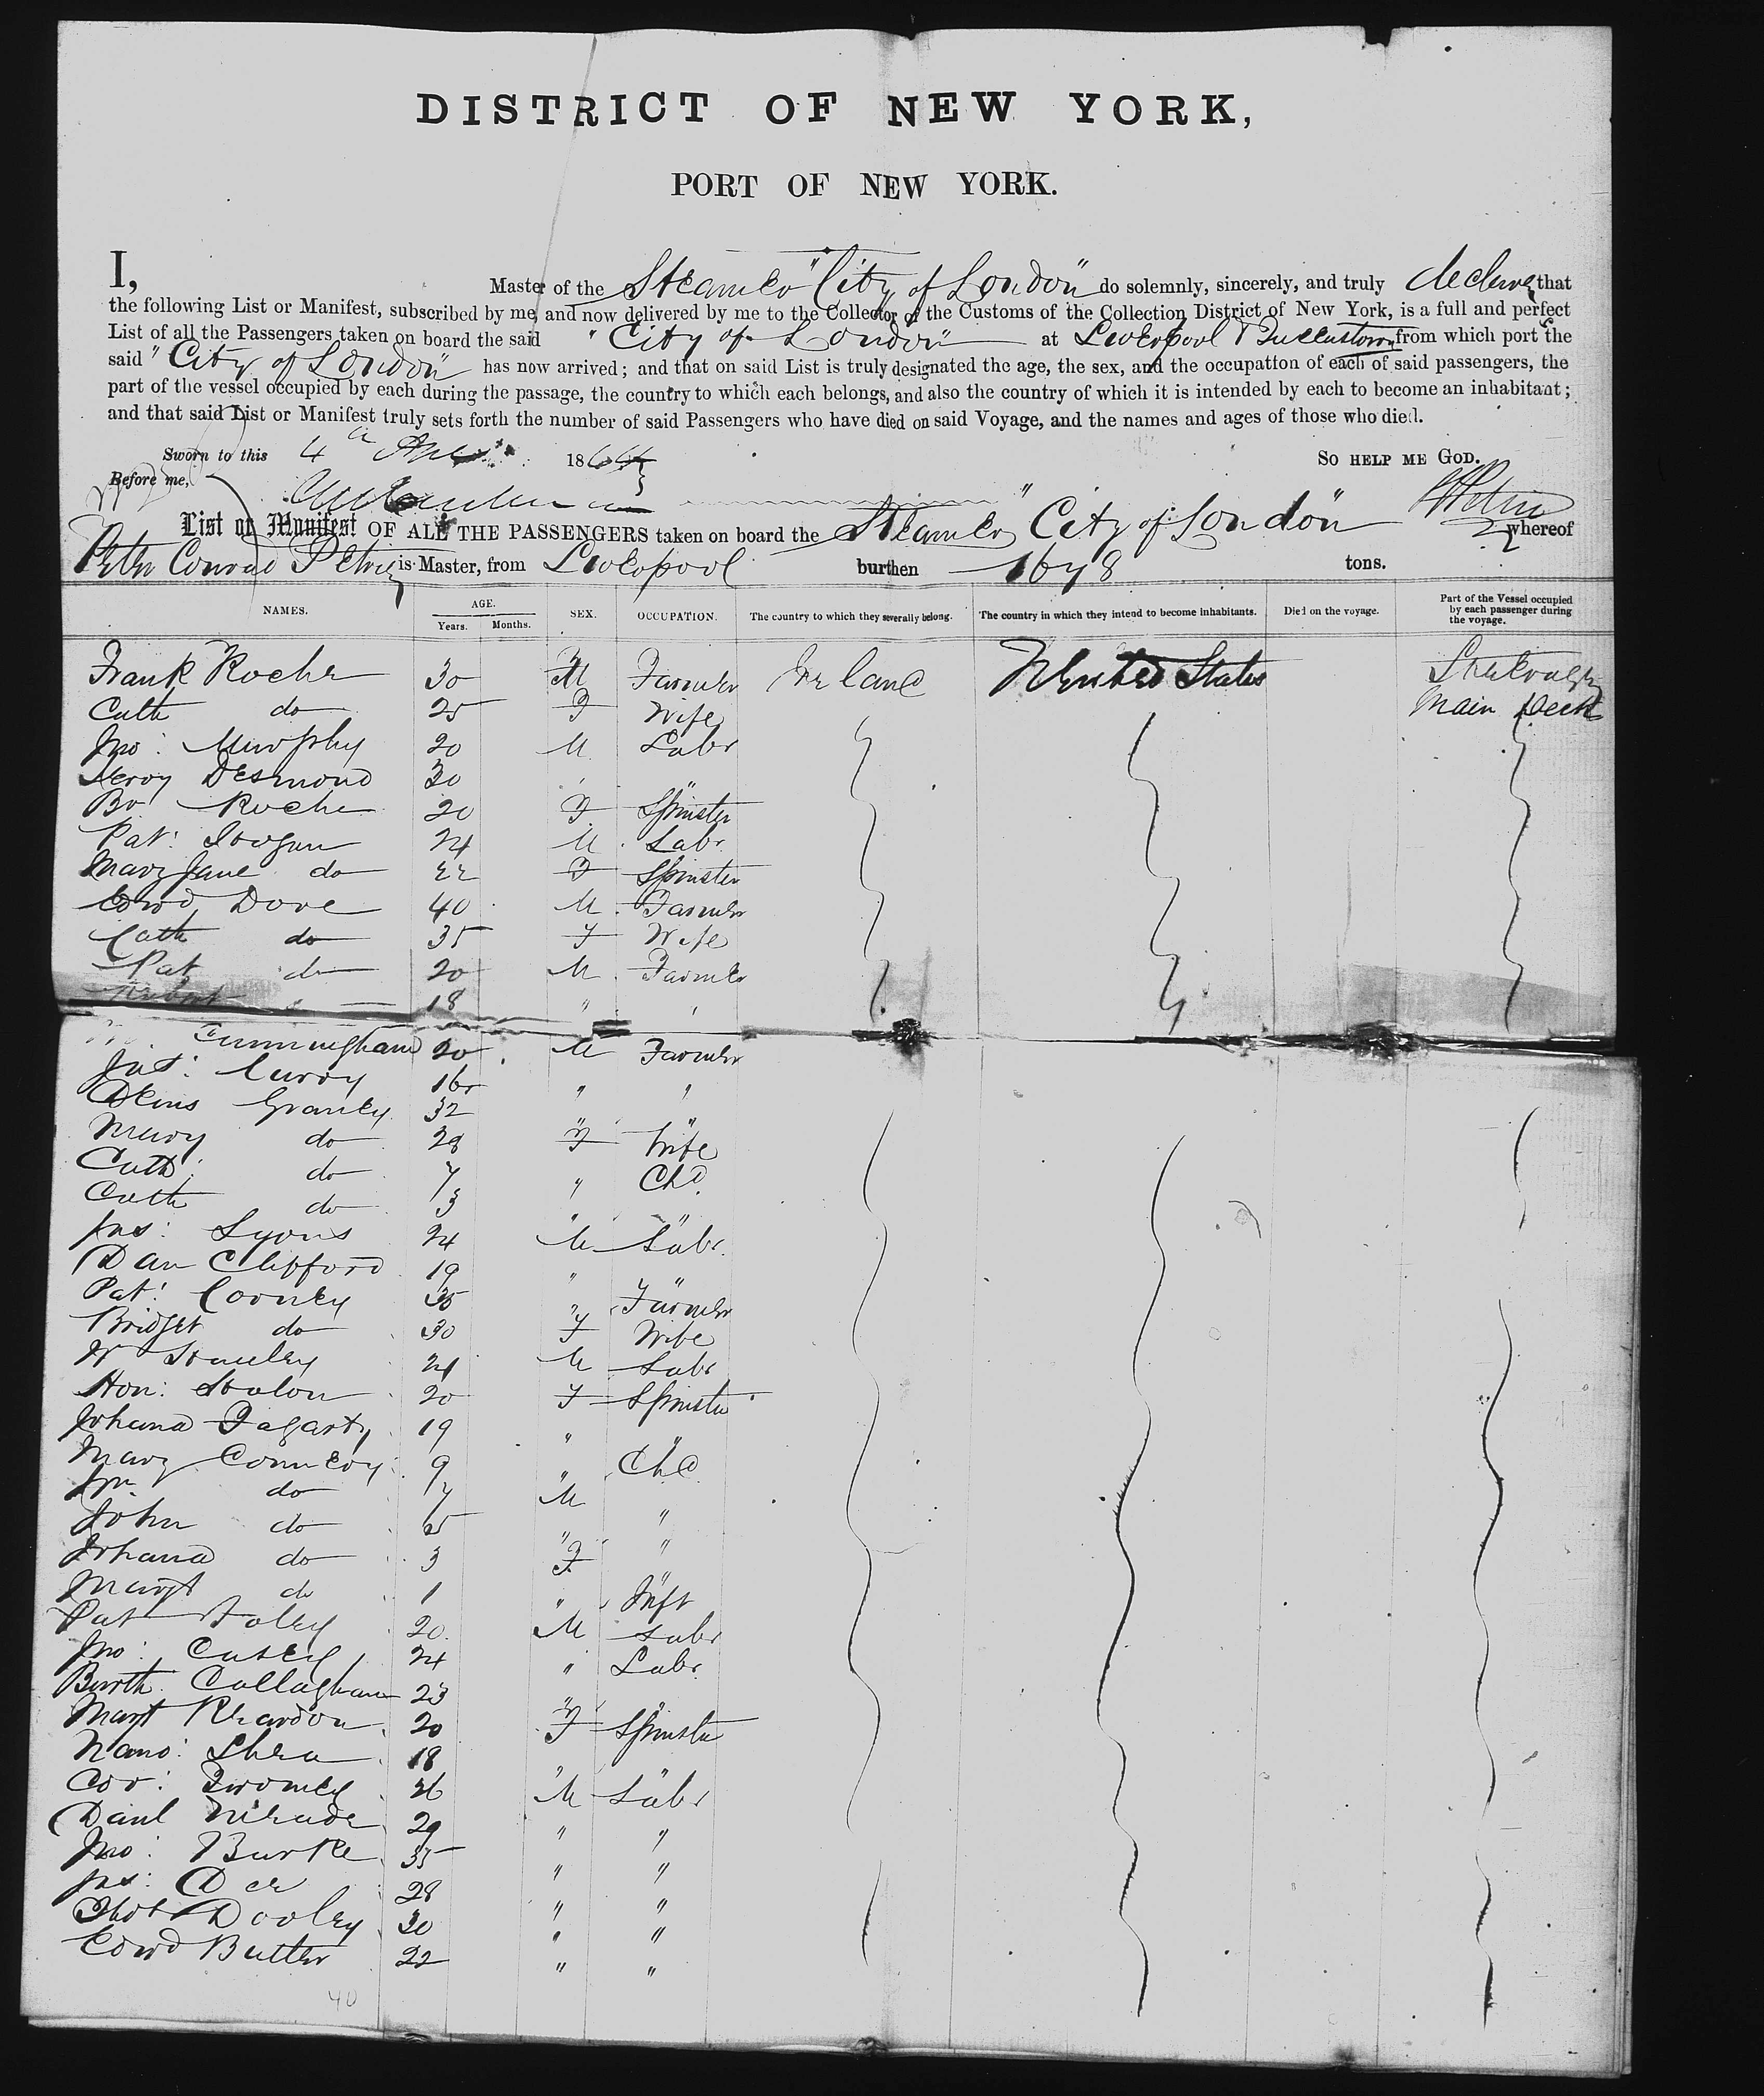 DISTRICT OF NEW YORK,
PORT OF NEW YORK.
I, Master of the Steamer "City of London" do solemnly, sincerely, and truly declare that
the following List or Manifest, subscribed by me, and now delivered by me to the Collector of the Customs of the Collection District of New York, is a full and perfect
List of all the Passengers taken on board the said "City of London" at Liverpool & Queenstown from which port the
said "City of London" has now arrived; and that on said List is truly designated the age, the sex, and the occupation of each of said passengers, the
part of the vessel occupied by each during the passage, the country to which each belongs, and also the country of which it is intended by each to become an inhabitant;
and that said List or Manifest truly sets forth the number of said Passengers who have died on said Voyage, and the names and ages of those who died.
Sworn to this 4 1864 SO HELP ME GOD.
Before me,
List or Manifest OF ALL THE PASSENGERS taken on board the Steamer "City of London" whereof
Peter Conrad Petrie is Master, from Liverpool burthen 1678 tons.
NAMES. AGE. Years. Months. SEX. OCCUPATION. The country to which they severally belong. The country in which they intend to become inhabitants. Died on the voyage. Part of the Vessel occupied by each passenger during the voyage.
Frank Roche 30 M Farmer Ireland United States Steerage
Cath do 25 F Wife Main Deck
Jno: Murphy 20 M Labr
Desmond 30 "
Roche 20 F Spinster
Pat: 24 M Labr
Mary Jane do 22 F Spinster
Edwd Dove 40 M Farmer
Cath do 35 F Wife
Pat do 20 M Farmer
18 " "
Cunningham 20 M Farmer
Curry 16 " "
Granley 32 " "
Mary do 28 F Wife
Cath: do 7 " Chd
Cath do 3 " "
Jas: Lyons 24 M Labr
Dan Clifford 19 " "
Pat: Cooney 35 " Farmer
Bridget do 30 F Wife
21 M Labr
Hon: 20 F Spinster
Johana Fagarty 19 " "
Mary 9 " Chd
do 7 M "
John do 5 " "
Johana do 3 F "
Margt do 1 " Inft
Pat Foley 20 M Labr
Jno: Casey 24 " Labr
Barth. Callaghan 23 " "
Margt Reardon 20 F Spinster
Nano: Shea 18 " "
Cor: Twomey 26 M Labr
Danl Meade 29 " "
Jno: Burke 35 " "
Jas: 28 " "
Thos Dooley 30 " "
Edwd Butler 22 " "
40